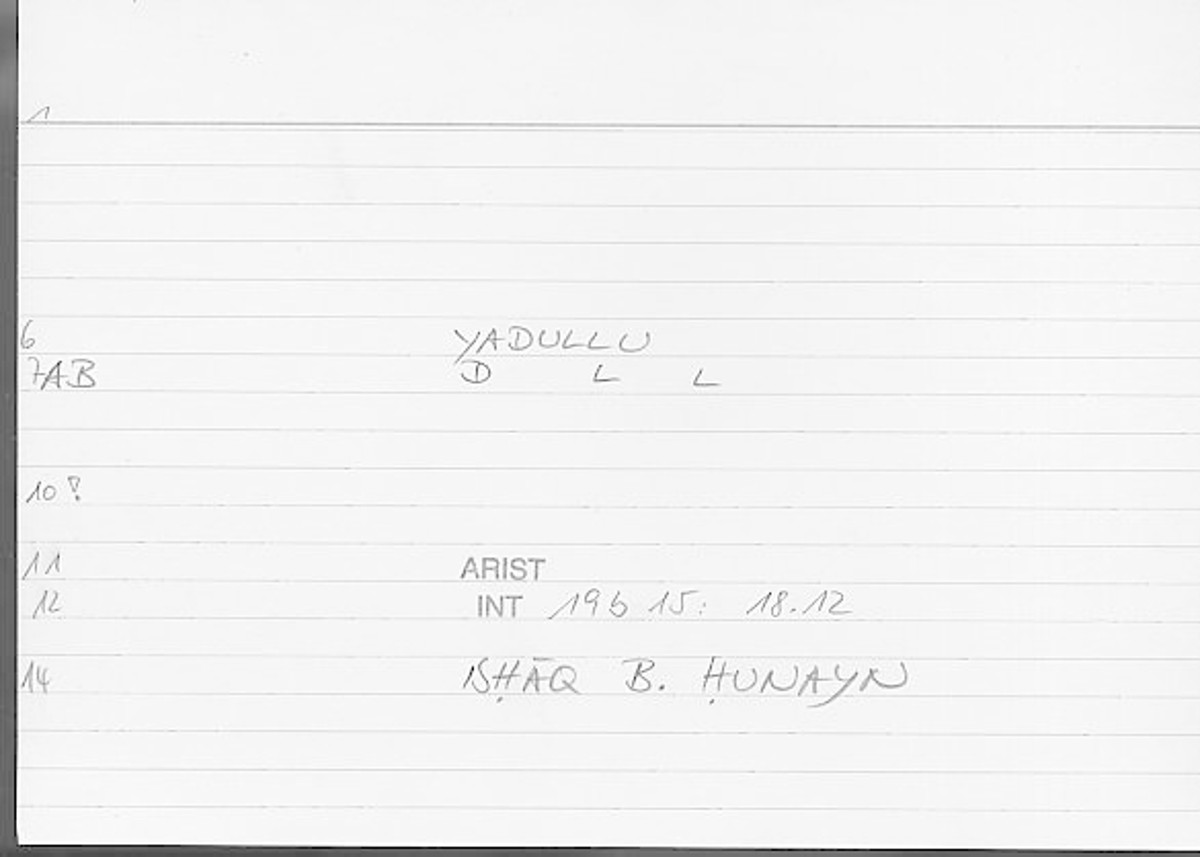 1
6 YADULLU
7AB D L L
10 !
11 ARIST
12 INT 19b 15: 18.12
14 ISḤĀQ B. ḤUNAYN